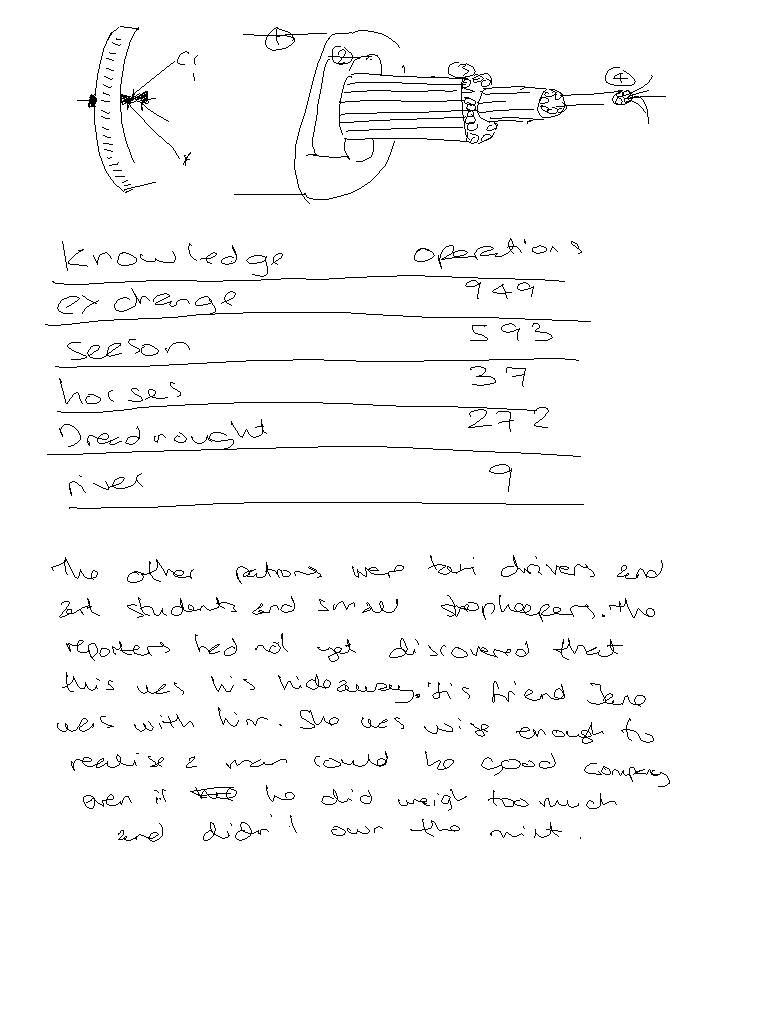 Cr
1
2
3
4
x
Knowledge operations
exchange 949
season 593
horses 37
Dreadnought 272
river 9
The other patrons were taxi drivers and
art students and small shopkeepers. The
reporters had not yet discovered that
this was his hideaway. His friend Jane
was with him. She was wise enough to
realise a man could be good company
even if he did weigh too much
and didn't own the mint.